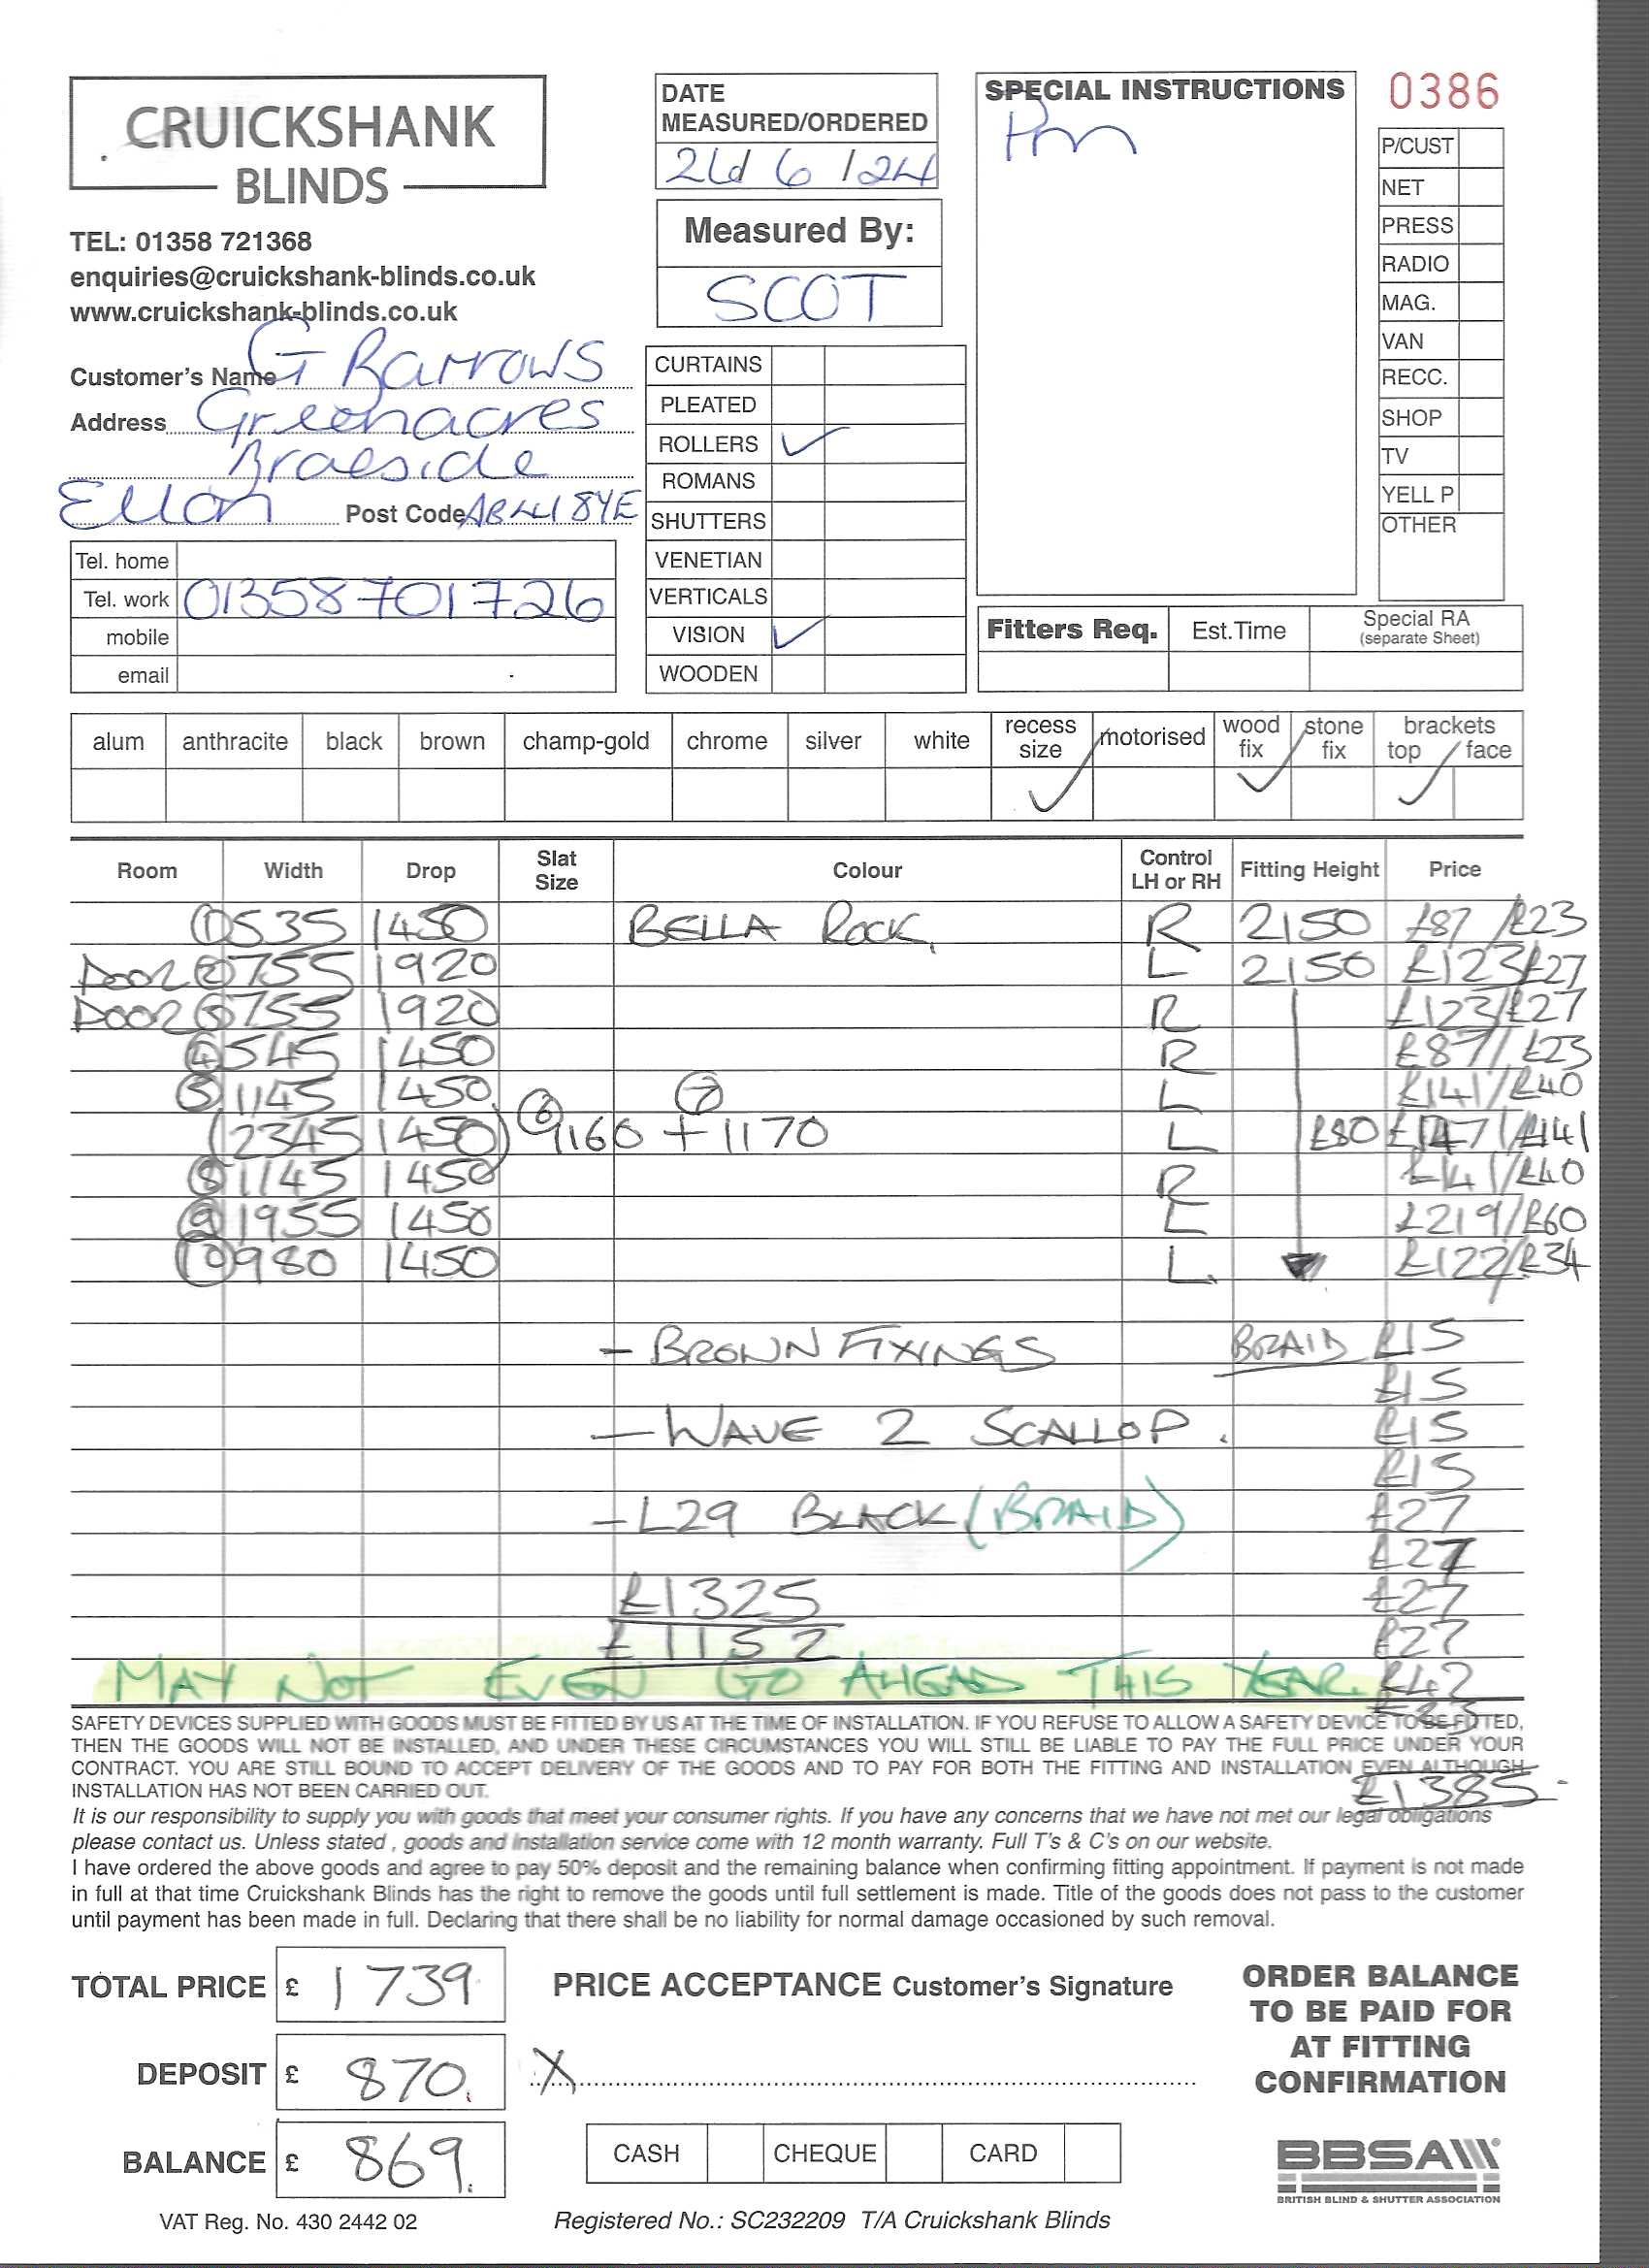 CRUICKSHANK
BLINDS
TEL: 01358 721368
enquiries@cruickshank-blinds.co.uk
www.cruickshank-blinds.co.uk
Customer's Name G Barrows
Address Greenacres
Braeside
Ellon Post Code AB41 8YE
Tel. home
Tel. work 01358701726
mobile
email
DATE
MEASURED/ORDERED
6/24
Measured By:
SCOT
CURTAINS
PLEATED
ROLLERS ✓
ROMANS
SHUTTERS
VENETIAN
VERTICALS
VISION ✓
WOODEN
SPECIAL INSTRUCTIONS
Pm
0386
P/CUST
NET
PRESS
RADIO
MAG.
VAN
RECC.
SHOP
TV
YELL P
OTHER
Fitters Req. Est.Time Special RA
(separate Sheet)
alum anthracite black brown champ-gold chrome silver white recess size motorised wood fix stone fix brackets top / face
✓ ✓ ✓
Room Width Drop Slat Size Colour Control LH or RH Fitting Height Price
① 535 1450 BELLA ROCK R 2150 £87/£23
DOOR ② 755 1920 L 2150 £123/£27
DOOR ③ 755 1920 R £123/£27
④ 545 1450 R £87/£23
⑤ 1145 1450 L £141/£40
(2345 1450) ⑥ 1160 + ⑦ 1170 L £80 £141
⑧ 1145 1450 R £141/£40
⑨ 1955 1450 L £219/£60
⑩ 980 1450 L £122/£34
- BROWN FIXINGS BRAID £15
£15
- WAVE 2 SCALLOP. £15
£15
- L29 BLACK (BRAID) £27
£27
£1325 £27
£1152 £27
MAY NOT EVEN GO AHEAD THIS YEAR. £42
SAFETY DEVICES SUPPLIED WITH GOODS MUST BE FITTED BY US AT THE TIME OF INSTALLATION. IF YOU REFUSE TO ALLOW A SAFETY DEVICE TO BE FITTED,
THEN THE GOODS WILL NOT BE INSTALLED, AND UNDER THESE CIRCUMSTANCES YOU WILL STILL BE LIABLE TO PAY THE FULL PRICE UNDER YOUR
CONTRACT. YOU ARE STILL BOUND TO ACCEPT DELIVERY OF THE GOODS AND TO PAY FOR BOTH THE FITTING AND INSTALLATION EVEN ALTHOUGH
INSTALLATION HAS NOT BEEN CARRIED OUT.
£1385-
It is our responsibility to supply you with goods that meet your consumer rights. If you have any concerns that we have not met our legal obligations
please contact us. Unless stated , goods and installation service come with 12 month warranty. Full T's & C's on our website.
I have ordered the above goods and agree to pay 50% deposit and the remaining balance when confirming fitting appointment. If payment is not made
in full at that time Cruickshank Blinds has the right to remove the goods until full settlement is made. Title of the goods does not pass to the customer
until payment has been made in full. Declaring that there shall be no liability for normal damage occasioned by such removal.
TOTAL PRICE £ 1739
DEPOSIT £ 870.
BALANCE £ 869.
VAT Reg. No. 430 2442 02
PRICE ACCEPTANCE Customer's Signature
X
CASH CHEQUE CARD
Registered No.: SC232209 T/A Cruickshank Blinds
ORDER BALANCE
TO BE PAID FOR
AT FITTING
CONFIRMATION
BBSA
BRITISH BLIND & SHUTTER ASSOCIATION